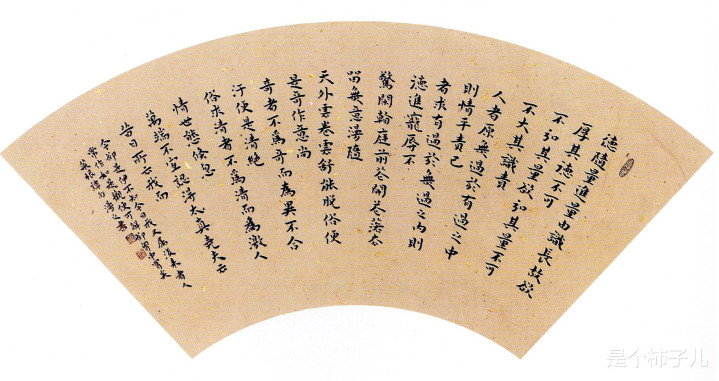 德隨量進量由識長故欲
厚其德不可
不弘其量欲弘其量不可
不大其識責
人者原無過於有過之中
則情平責己
者求有過於無過之內則
德進寵辱不
驚閒庭前花開花落去
留無意漫隨
天外雲卷雲舒能脫俗便
是奇作意尚
奇者不為奇而為異不合
汙便是清絕
俗求清者不為清而為激人
情世態倏忽
萬端不宜認得太真堯夫云
昔日所云我而
今卻是伊不知今日我又屬後來者人
常作如是觀便可解卻胸中胃矣
菜根譚句
是个柿子儿